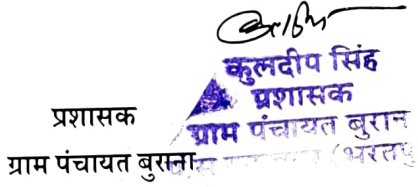 कुलदीप सिंह
प्रशासक
ग्राम पंचायत बुरान
(भरतपु
प्रशासक
ग्राम पंचायत बुराना